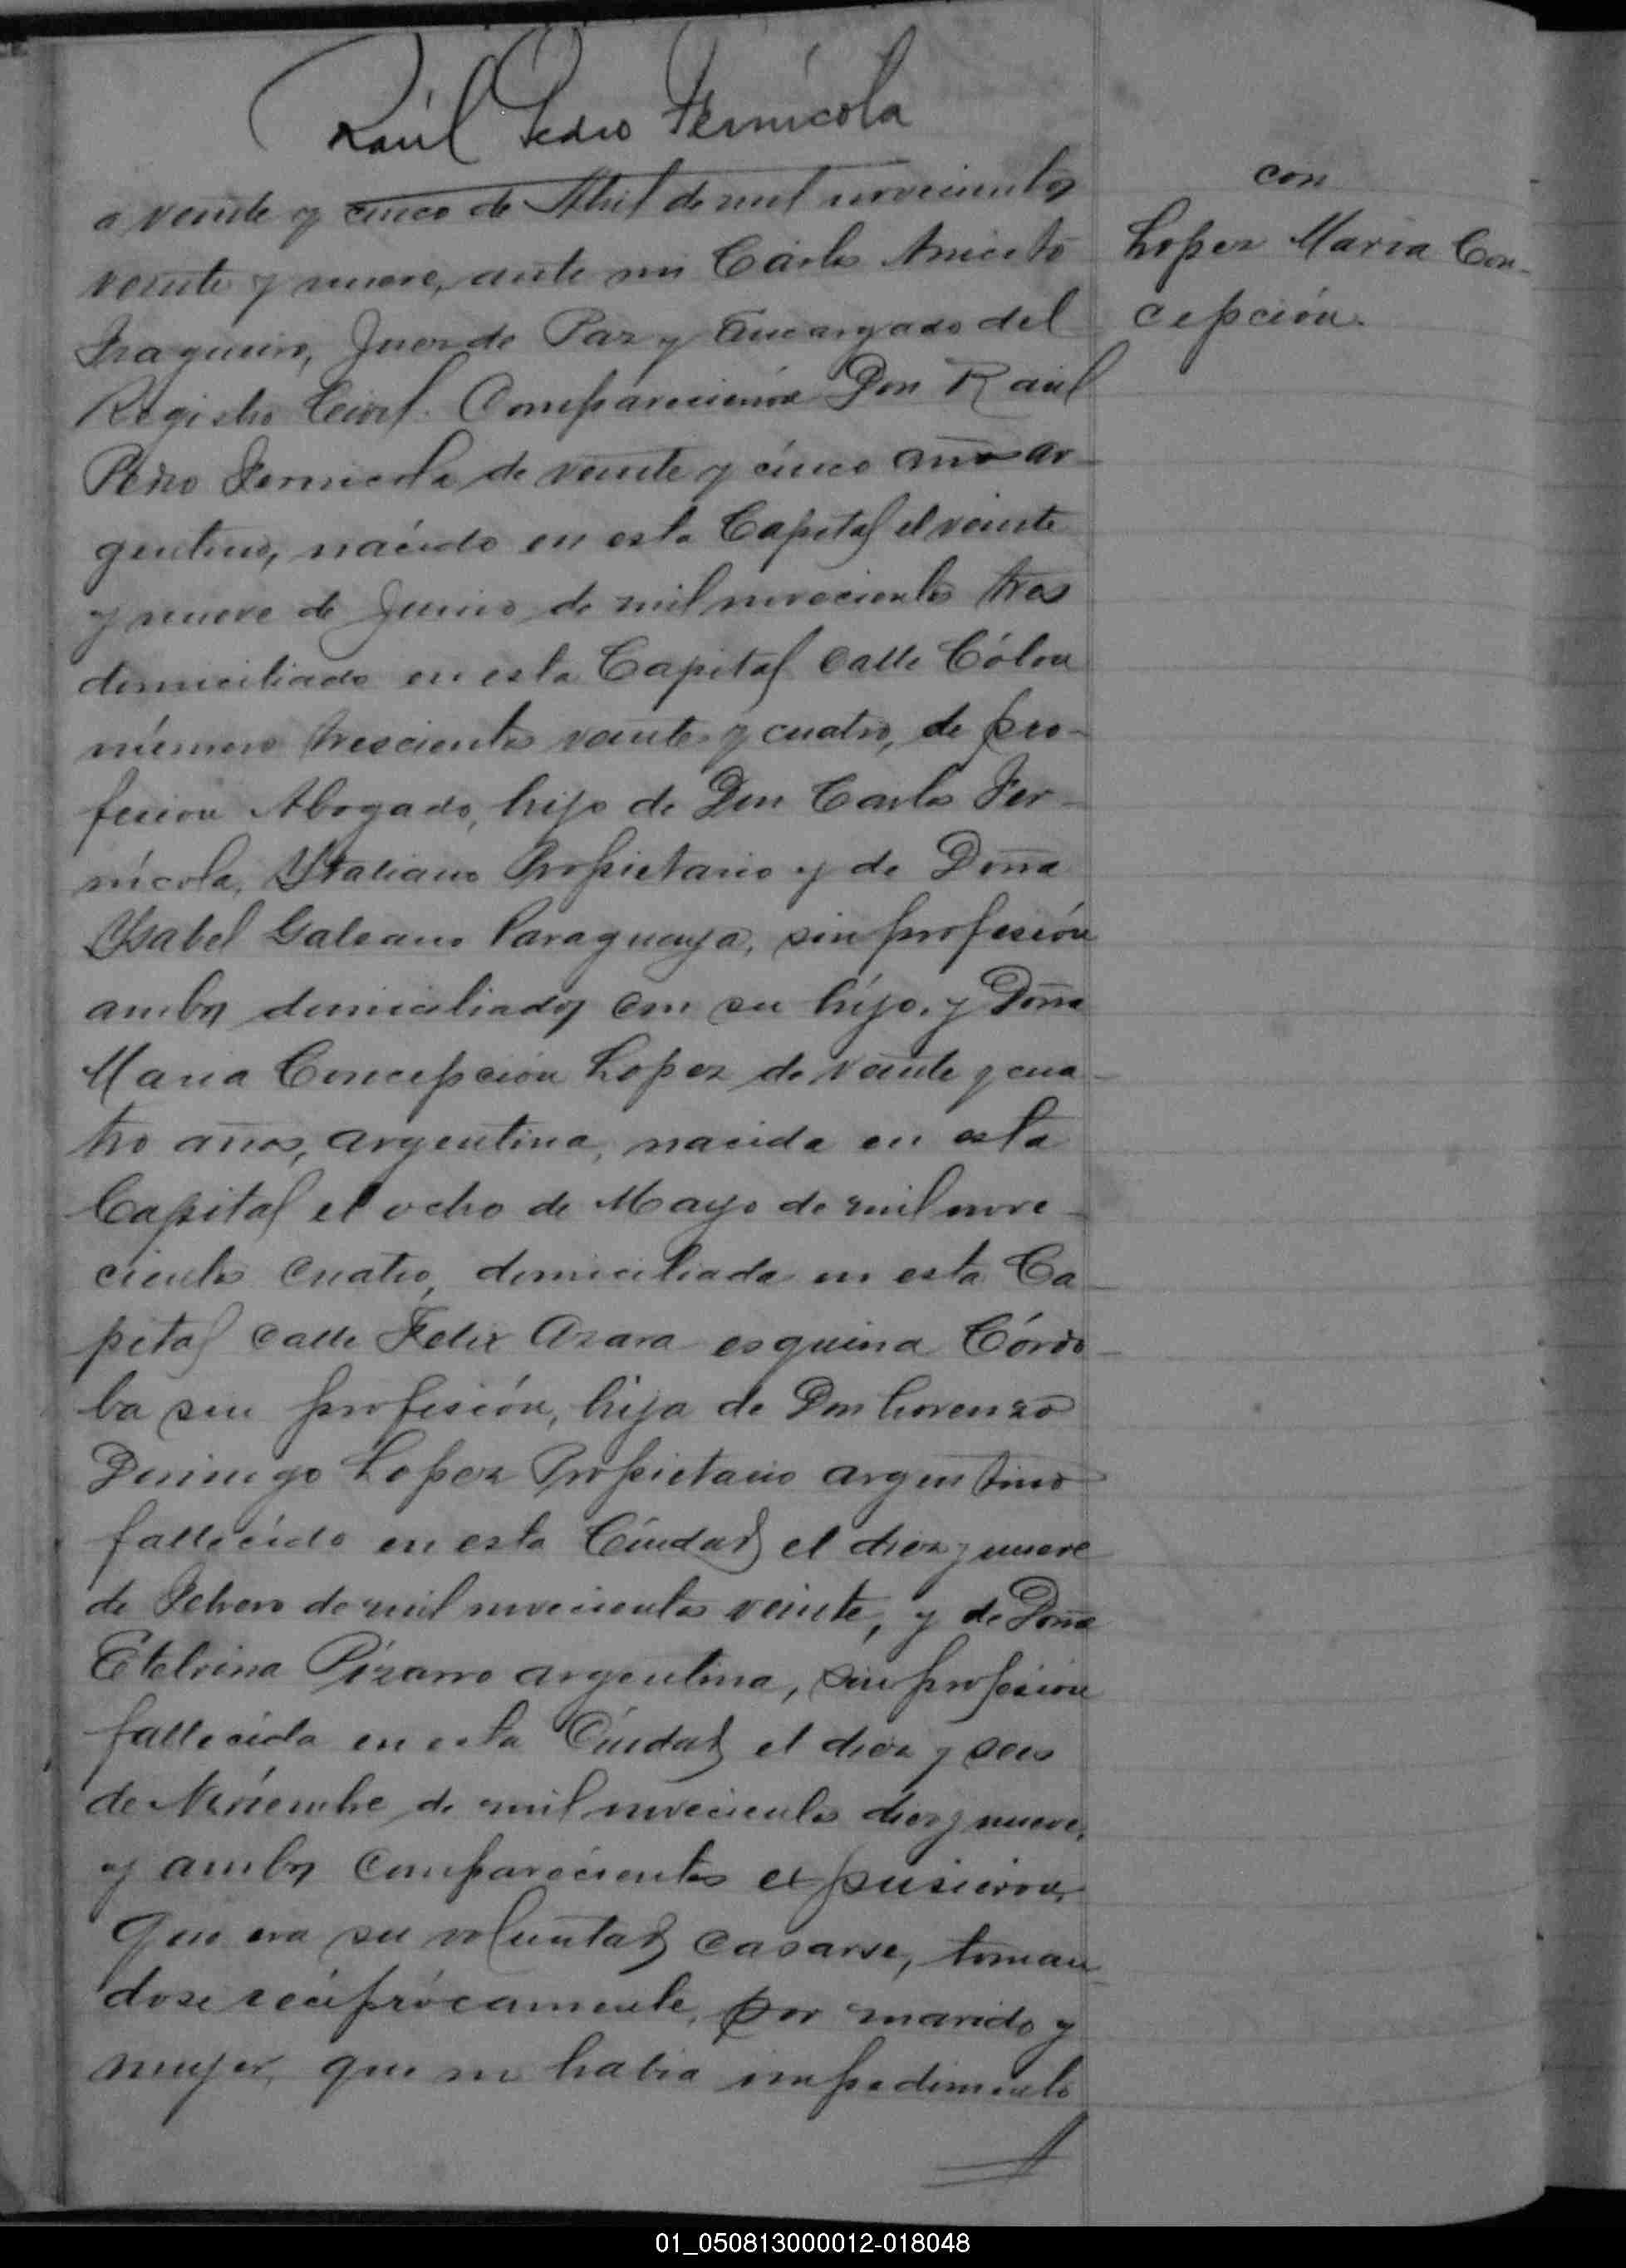 Raúl Pedro Fernícola
a veinte y cinco de Abril de mil novecientos
veinte y nueve, ante mi Cárlos Aniceto
Juez de Paz y Encargado del
Registro Civil. Comparecieron Don Raúl
Pedro Fernicola de veinte y cinco años ar-
gentino, nacido en esta Capital el veinte
y nueve de Junio de mil novecientos tres
domiciliado en esta Capital calle Cólon
número trescientos veinte y cuatro, de pro-
fesion Abogado, hijo de Don Carlos Fer-
nícola, Ytaliano Propietario y de Doña
Ysabel Galeano Paraguaya, sin profesión
ambos domiciliados con su hijo, y Doña
Maria Concepción Lopez de veinte y cua-
tro años, argentina, nacida en esta
Capital el ocho de Mayo de mil nove-
cientos cuatro, domiciliada en esta Ca-
pital calle Felix Azara esquina Córdo-
ba sin profesión, hija de Don Lorenzo
Domingo Lopez Propietario argentino
fallecido en esta Ciudad el diez y nueve
de Febrero de mil novecientos veinte, y de Doña
Etelvina Pizarro argentina, sin profesion
fallecida en esta Ciudad el diez y seis
de Noviembre de mil novecientos diez y nueve,
y ambos comparecientes expusieron,
que era su voluntad casarse, toman-
dose recíprócamente, por marido y
mujer, que no habia impedimento
con
Lopez Maria Con-
cepción.
01_050813000012-018048